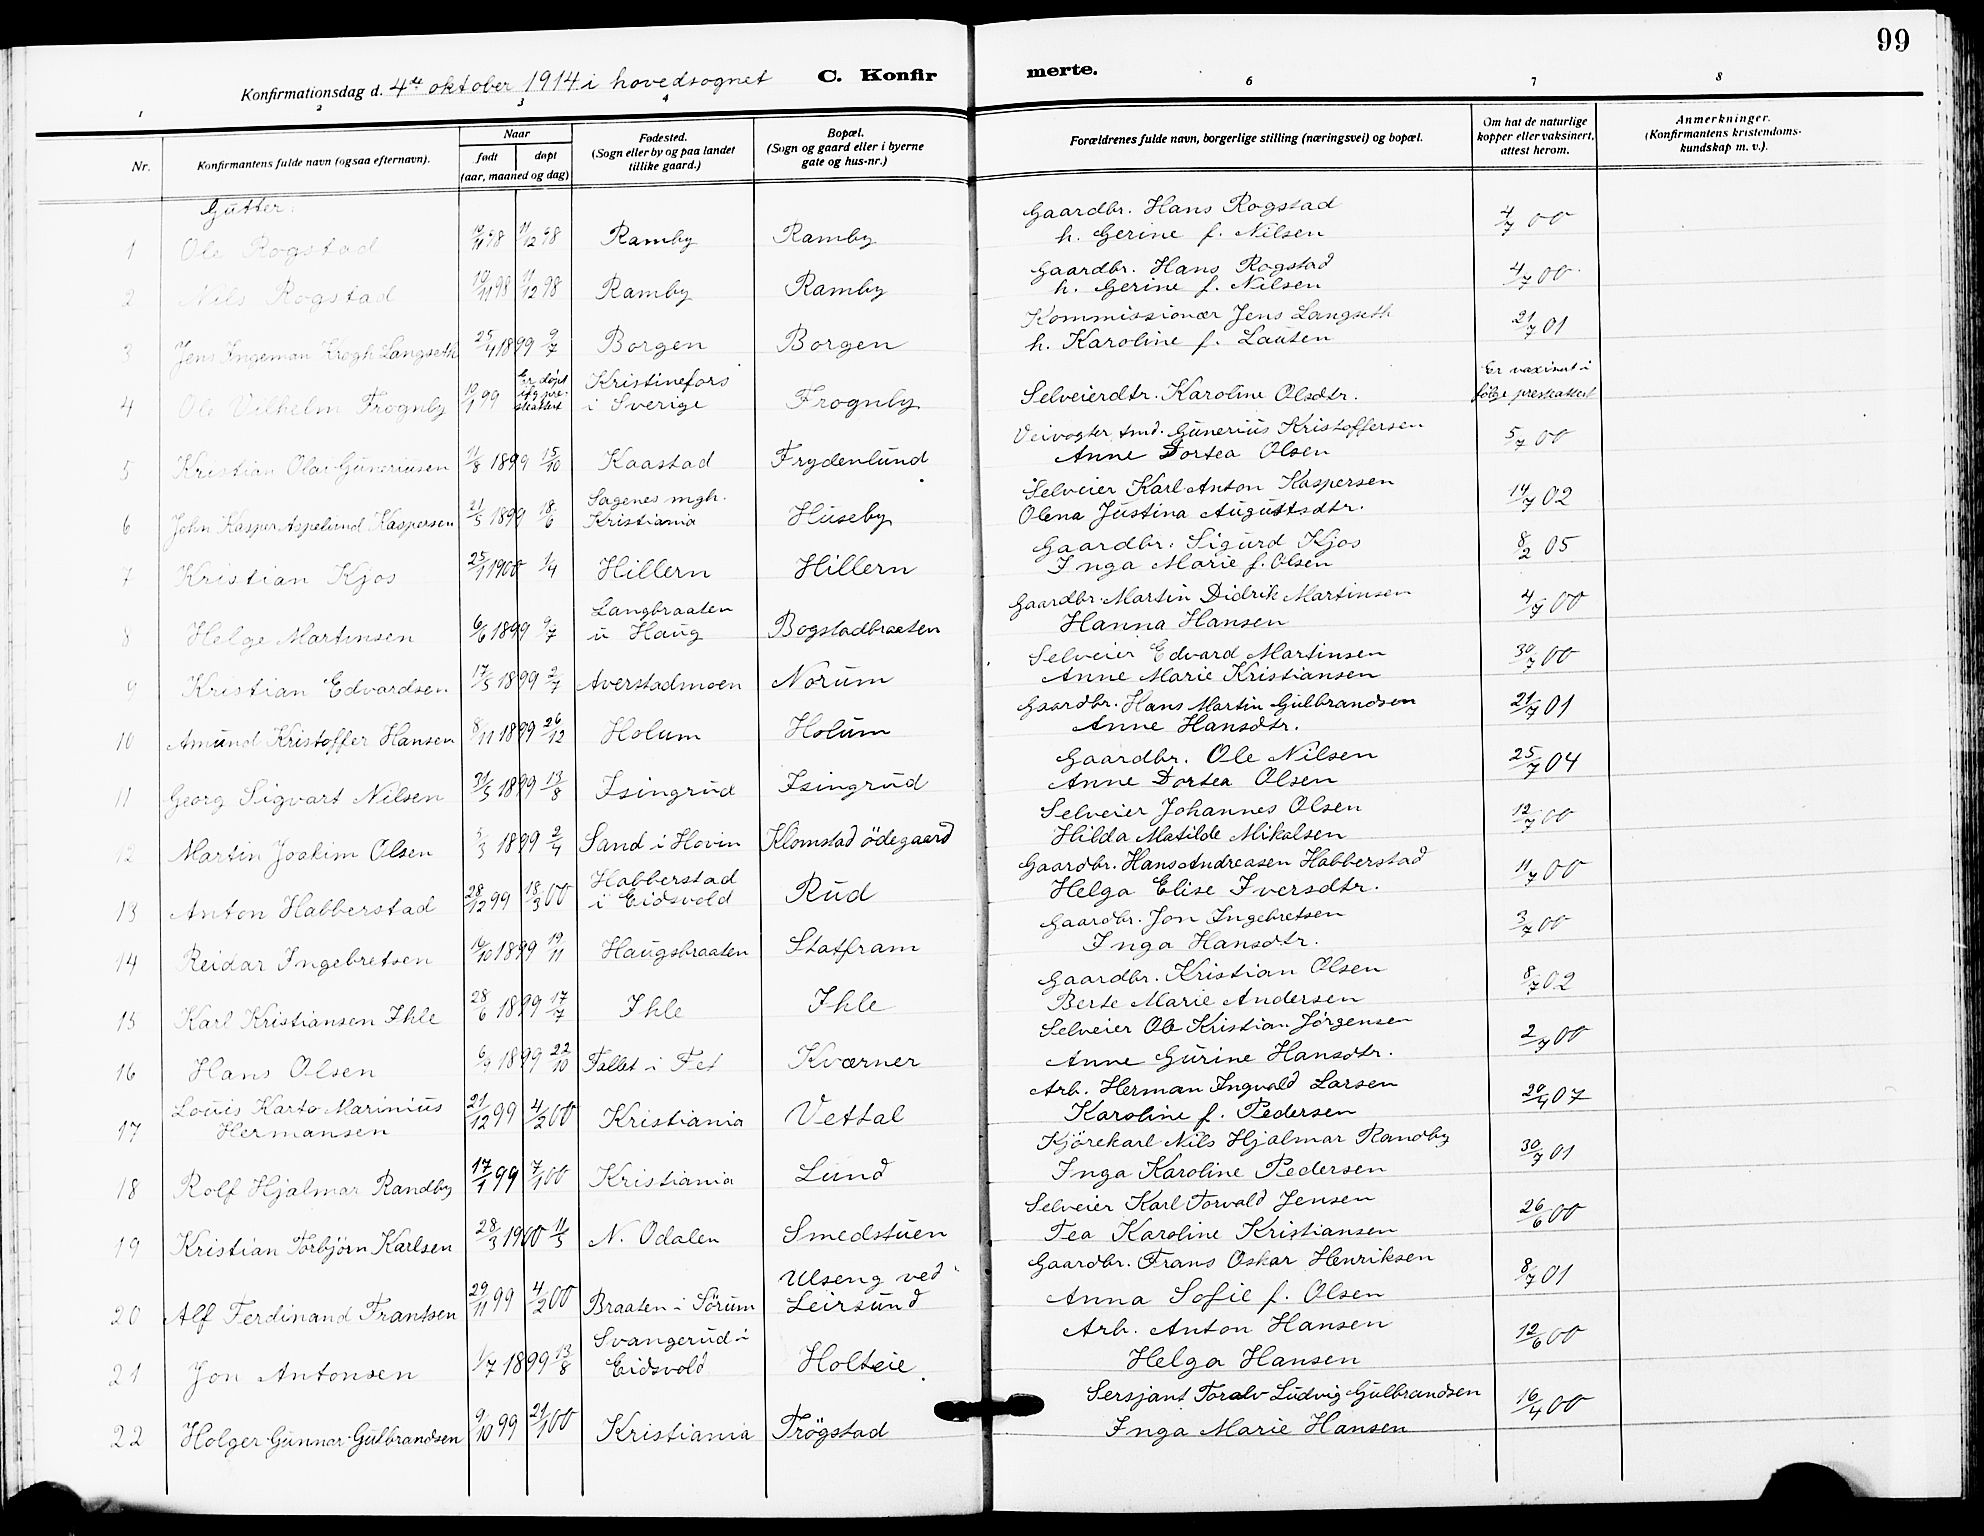 99
Konfirmationsdag d. 4de oktober 1914 i hovedsognet C. Konfirmerte.
1 2 3 4 6 7 8
Nr. Konfirmantens fulde navn (ogsaa efternavn). Naar født døpt (aar, maaned og dag) Fødested. (Sogn eller by og paa landet tillike gaard.) Bopæl. (Sogn og gaard eller i byerne gate og hus-nr.) Forældrenes fulde navn, borgerlige stilling (næringsvei) og bopæl. Om hat de naturlige kopper eller vaksinert, attest herom. Anmerkninger. (Konfirmantens kristendoms-kundskap m. v.).
Gutter:
1 Ole Rogstad 19/11 98 11/12 98 Ramby Ramby Gaardbr. Hans Rogstad
h. Gerine f. Nilsen 4/7 00
2 Nils Rogstad 19/11 98 11/12 98 Ramby Ramby Gaardbr. Hans Rogstad
h. Gerine f. Nilsen 4/7 00
3 Jens Ingeman Krogh Langseth 25/4 1899 9/7 Borgen Borgen Kommissionær Jens Langseth
h. Karoline f. Lausen 21/7 01
4 Ole Vilhelm Frognby 19/1 99 Er døpt ifg. presteattest Kristinefors
i Sverige Frognby Selveierdtr. Karoline Olsdtr. Er vaxinert i
følge presteattest
5 Kristian Olai Guneriusen 11/8 1899 15/10 Kaastad Frydenlund Veivogter, smd. Gunerius Kristoffersen
Anne Dortea Olsen 5/7 00
6 John Kasper Aspelund Kaspersen 21/5 1899 18/6 Sagenes mgh.
Kristiania Huseby Selveier Karl Anton Kaspersen
Olena Justina Augustsdtr. 14/7 02
7 Kristian Kjos 25/1 1900 1/4 Hillern Hillern Gaardbr. Sigurd Kjos
Inga Marie f. Olsen 8/2 05
8 Helge Martinsen 6/6 1899 9/7 Langbraaten
u Haug Bogstadbraaten Gaardbr. Martin Didrik Martinsen
Hanna Hansen 4/7 00
9 Kristian Edvardsen 17/5 1899 2/7 Averstadmoen Norum Selveier Edvard Martinsen
Anne Marie Kristiansen 30/7 00
10 Amund Kristoffer Hansen 8/11 1899 26/12 Holum Holum Gaardbr. Hans Martin Gulbrandsen
Anne Hansdtr. 21/7 01
11 Georg Sigvart Nilsen 31/5 1899 13/8 Isingrud Isingrud Gaardbr. Ole Nilsen
Anne Dortea Olsen 25/7 04
12 Martin Joakim Olsen 3/3 1899 2/4 Sand i Hovin Klomstad ödegaard Selveier Johannes Olsen
Hilda Matilde Mikalsen 12/7 00
13 Anton Habberstad 28/12 99 18/3 00 Habberstad
i Eidsvold Rud Gaardbr. Hans Andreasen Habberstad
Helga Elise Iversdtr. 11/7 00
14 Reidar Ingebretsen 16/10 1899 19/11 Haugsbraaten Statfram Gaardbr. Jon Ingebretsen
Inga Hansdtr. 3/7 00
15 Karl Kristiansen Ihle 28/6 1899 17/7 Ihle Ihle Gaardbr. Kristian Olsen
Berte Marie Andersen 8/7 02
16 Hans Olsen 6/9 1899 22/10 Fallet i Fet Kværner Selveier Ole Kristian Jörgensen
Anne Gurine Hansdtr. 2/7 00
17 Louis Karto Marinius
Hermansen 21/12 99 4/2 00 Kristiania Vettal Arb. Herman Ingvald Larsen
Karoline f. Pedersen 20/4 07
18 Rolf Hjalmar Randby 17/9 99 7/1 00 Kristiania Lund Kjörekarl Nils Hjalmar Randby
Inga Karoline Pedersen 30/7 01
19 Kristian Torbjörn Karlsen 28/3 1900 11/5 N. Odalen Smedstuen Selveier Karl Torvald Jensen
Tea Karoline Kristiansen 26/6 00
20 Alf Ferdinand Frantsen 29/11 99 4/2 00 Braaten i Sörum Ulseng ved
Leirsund Gaardbr. Frans Oskar Henriksen
Anna Sofie f. Olsen 8/7 01
21 Jon Antonsen 1/7 1899 13/8 Svangerud i
Eidsvold Holteie Arb. Anton Hansen
Helga Hansen 12/6 00
22 Holger Gunnar Gulbrandsen 9/10 99 21/1 00 Kristiania Frögstad Sersjant Toralv Ludvig Gulbrandsen
Inga Marie Hansen 16/4 00